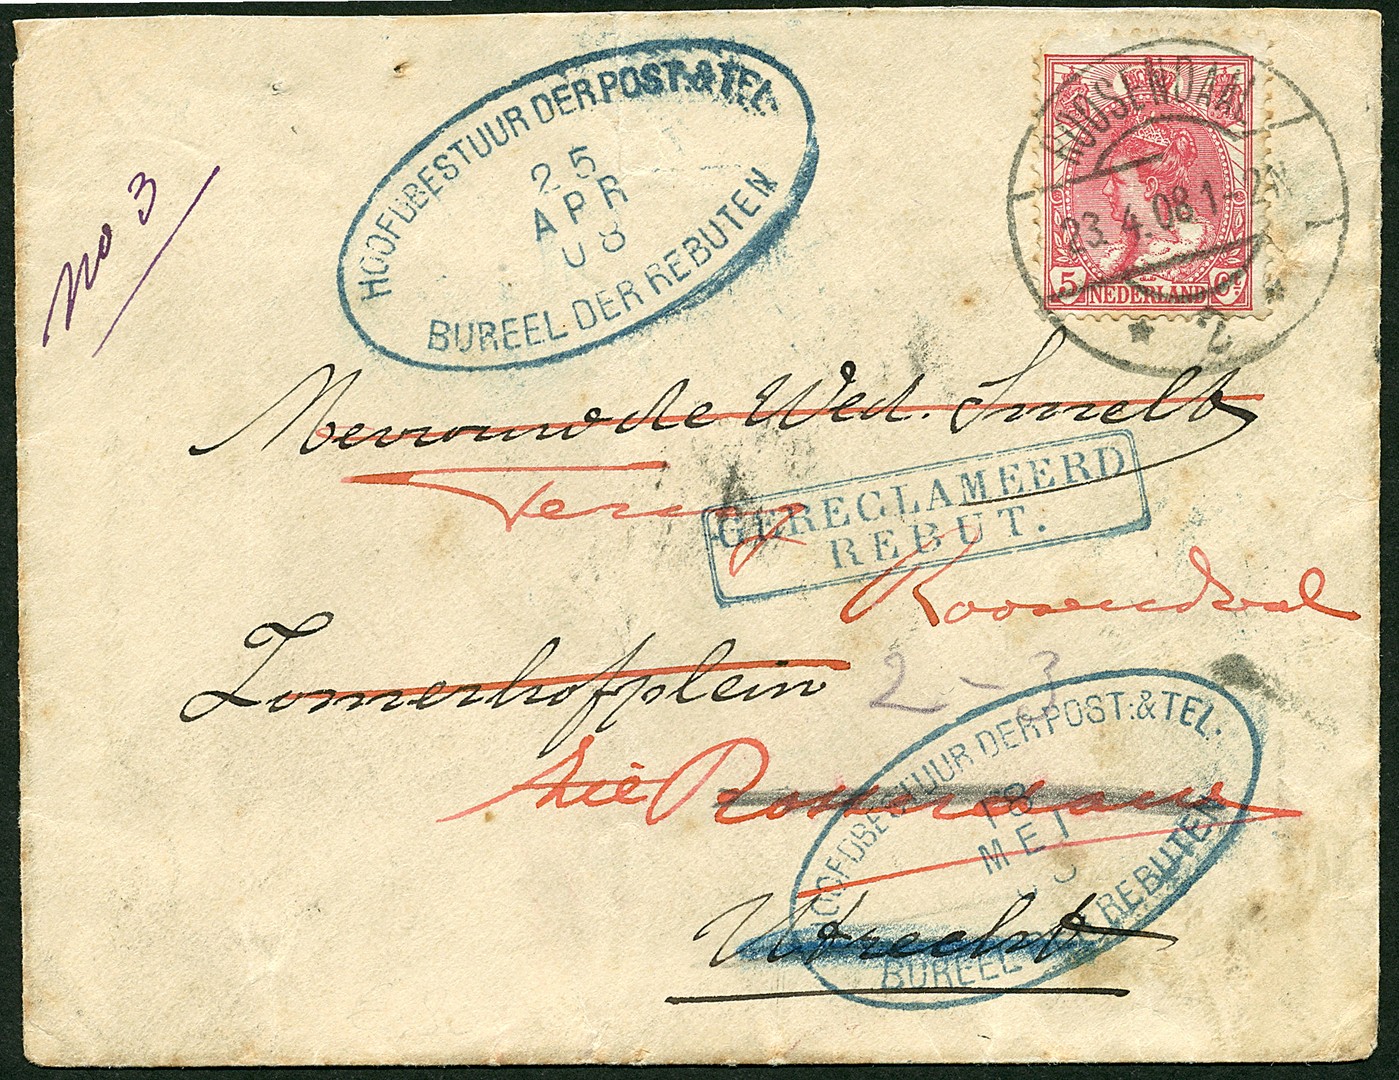 HOOFDBESTUUR DER POST.& TEL.
25
APR
08
BUREEL DER REBUTEN
ROOSENDAAL
23.4.08 1-2N
2
5 NEDERLAND Ct
no 3
Mevrouw de Wed. Smelt
Terug
GERECLAMEERD
REBUT.
Roosendaal
Zomerhofplein
2 - 3
HOOFDBESTUUR DER POST.& TEL.
18
MEI
08
BUREEL DER REBUTEN
Utrecht